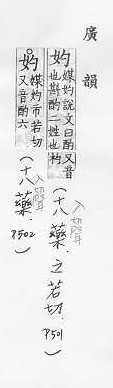 廣韻
妁 媒妁說文曰酌
也斟酌二姓也
又音
杓
(十八藥.之若切. P501)
入聲
妁 媒妁市若切
又音酌六
(十八藥. P502)
入聲